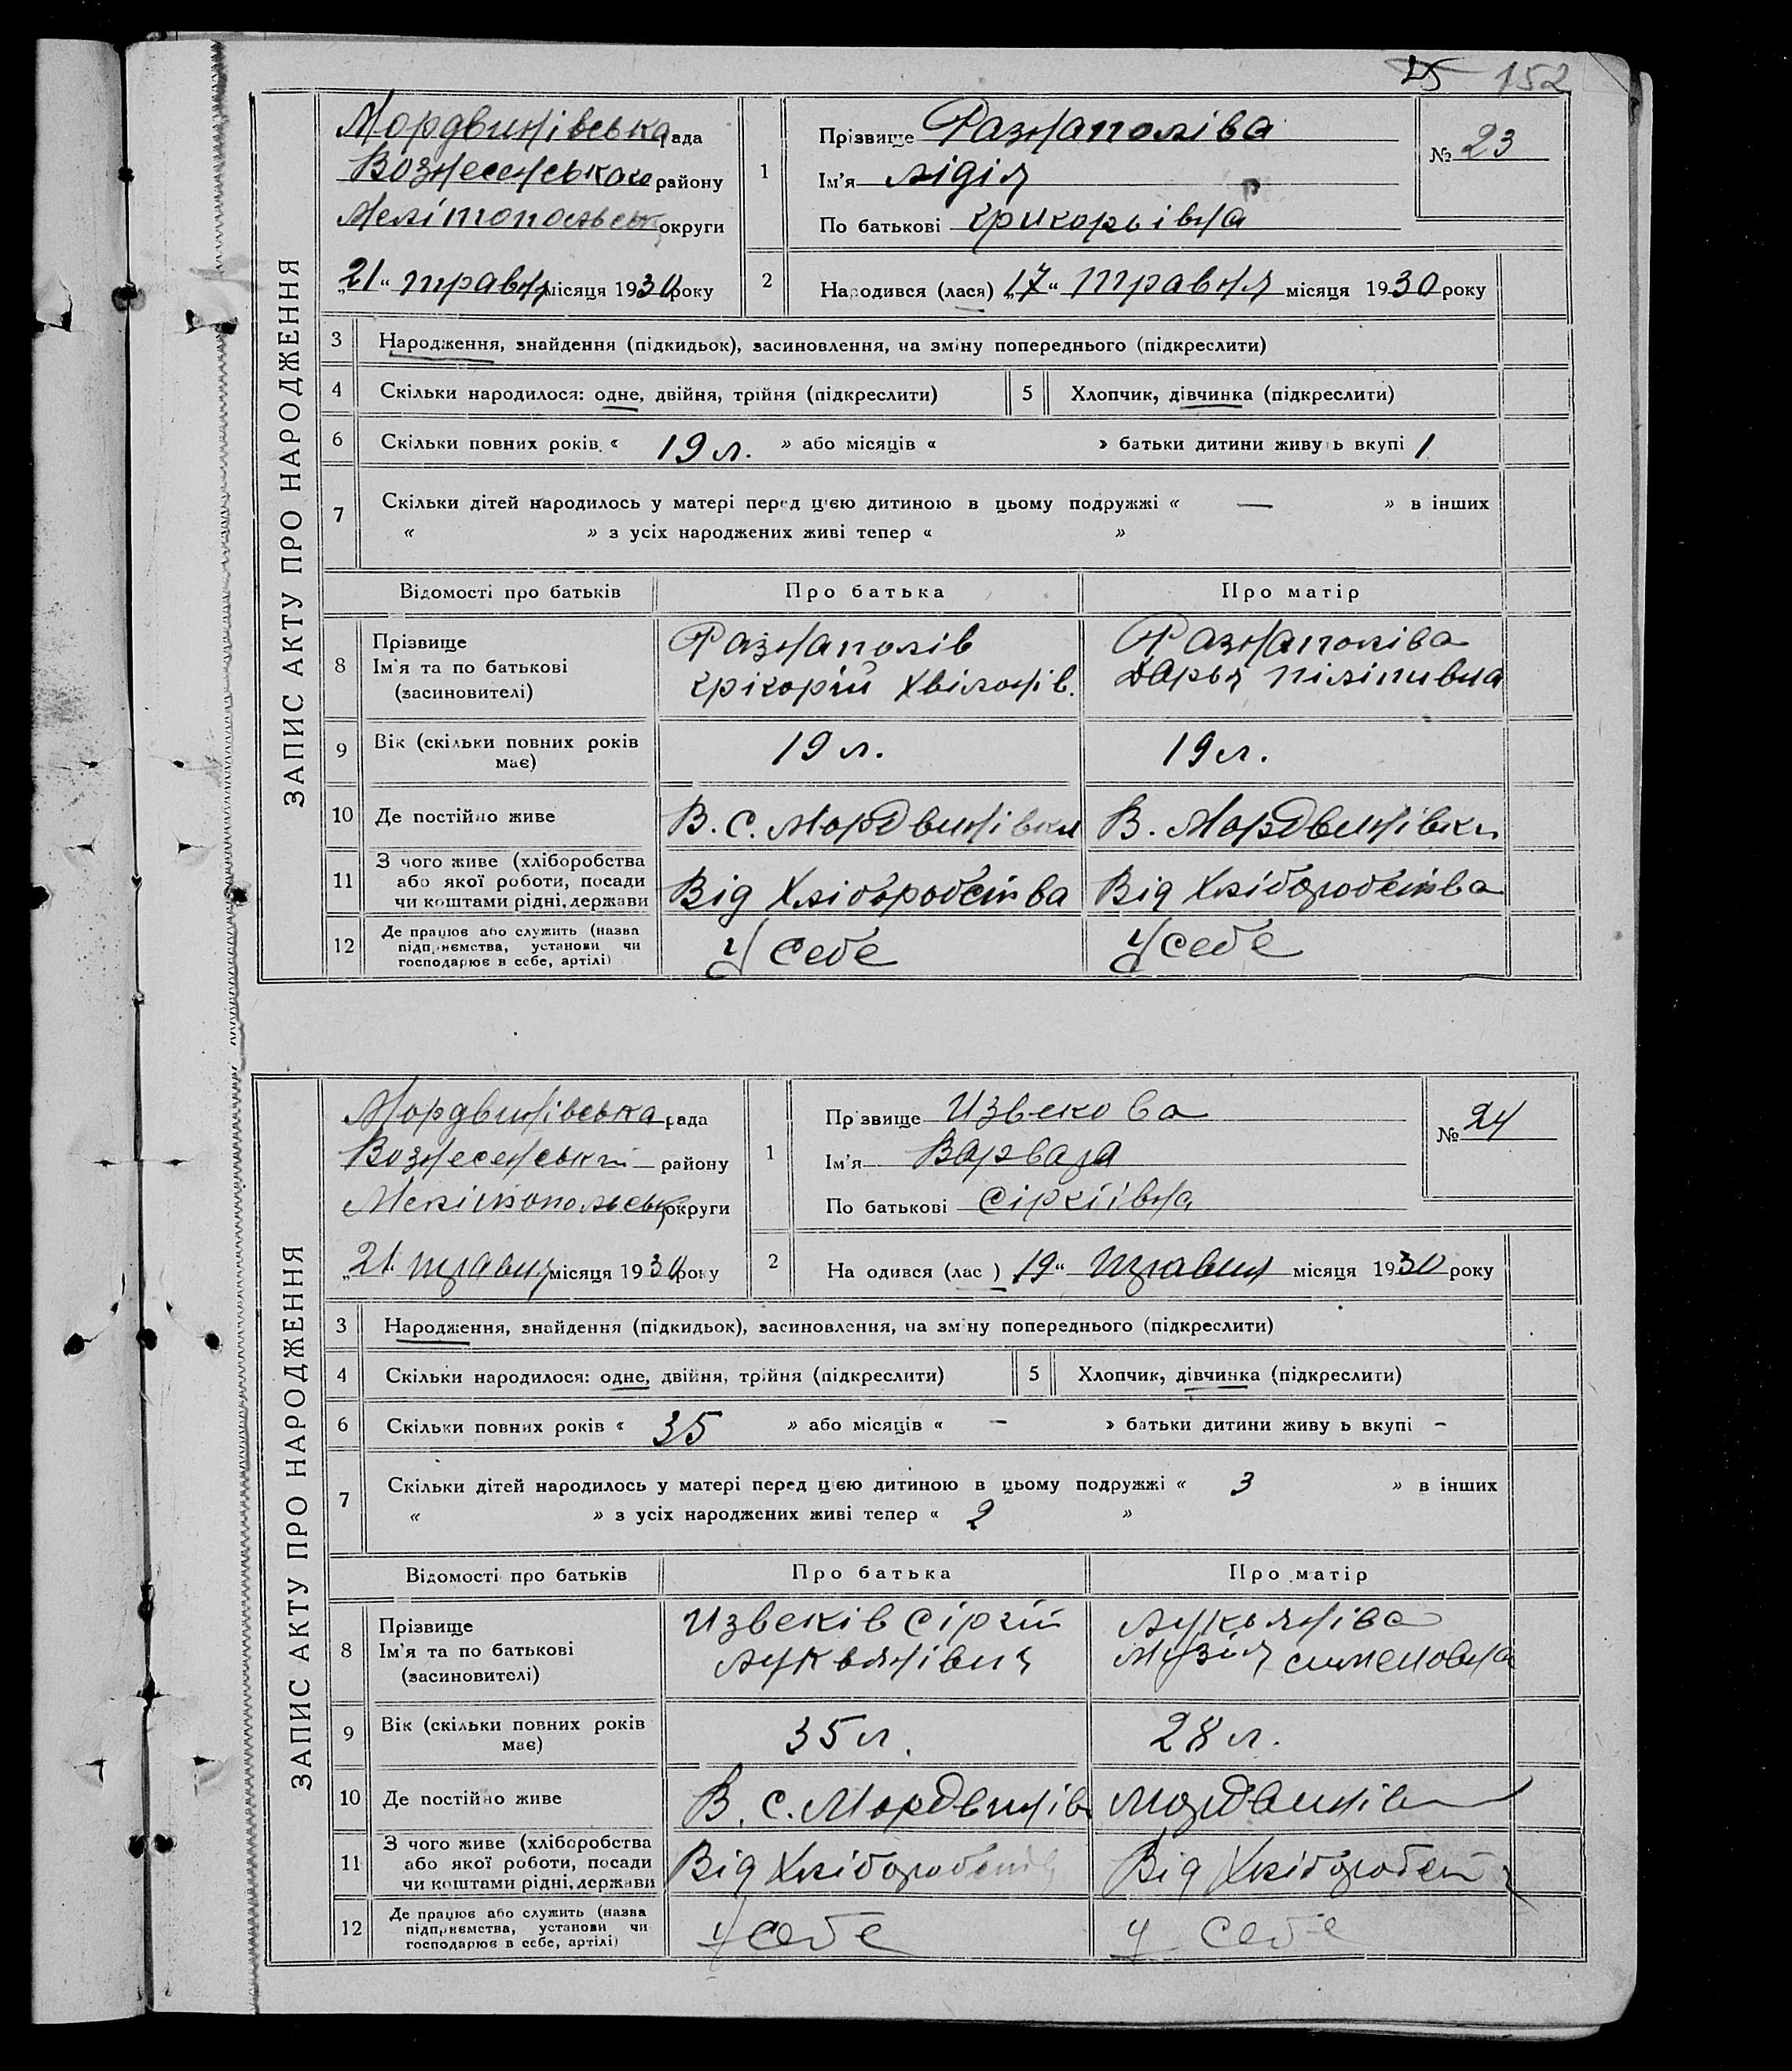 25 152
ЗАПИС АКТУ ПРО НАРОДЖЕННЯ
Мордвинівська рада
Вознесенського району
Мелітопольськ округи
„21“ травня місяця 1930 року
1
Прізвище Разнаполіва
Ім'я Лідія
По батькові Григорьівна
№ 23
2
Народився (лася) „17“ травня місяця 1930 року
3 Народження, знайдення (підкидьок), засиновлення, на зміну попереднього (підкреслити)
4 Скільки народилося: одне, двійня, трійня (підкреслити) 5 Хлопчик, дівчинка (підкреслити)
6 Скільки повних років « 19 л. » або місяців « » батьки дитини живуть вкупі 1
7 Скільки дітей народилось у матері перед цією дитиною в цьому подружжі « — » в інших
« » з усіх народжених живі тепер « »
Відомості про батьків Про батька Про матір
8 Прізвище
Ім'я та по батькові
(засиновителі)
Разнаполів
Грігорій Хвілонів.
Разнаполіва
Дарья Піліпивна
9 Вік (скільки повних років
має)
19 л. 19 л.
10 Де постійно живе В. С. Мордвинівки В. Мордвинівки
11 З чого живе (хліборобства
або якої роботи, посади
чи коштами рідні, держави
Від Хліборобства Від Хліборобства
12 Де працює або служить (назва
підприємства, установи чи
господарює в себе, артілі)
У себе У себе
ЗАПИС АКТУ ПРО НАРОДЖЕННЯ
Мордвинівська рада
Вознесенський району
Мелітопольськ округи
„21“ травня місяця 1930 року
1
Прізвище Извекова
Ім'я Варвара
По батькові Сіргіівна
№ 24
2
Народився (лася) 19“ травня місяця 1930 року
3 Народження, знайдення (підкидьок), засиновлення, на зміну попереднього (підкреслити)
4 Скільки народилося: одне, двійня, трійня (підкреслити) 5 Хлопчик, дівчинка (підкреслити)
6 Скільки повних років « 35 » або місяців « – » батьки дитини живуть вкупі –
7 Скільки дітей народилось у матері перед цією дитиною в цьому подружжі « 3 » в інших
« » з усіх народжених живі тепер « 2 »
Відомості про батьків Про батька Про матір
8 Прізвище
Ім'я та по батькові
(засиновителі)
Извеків Сіргій
Лукьянівич
Лукьяніва
сименовна
9 Вік (скільки повних років
має)
35 л. 28 л.
10 Де постійно живе В. С. Мордвинів Мордвинів
11 З чого живе (хліборобства
або якої роботи, посади
чи коштами рідні, держави
Від Хліборобства Від Хліборобст
12 Де працює або служить (назва
підприємства, установи чи
господарює в себе, артілі)
У себе У себе